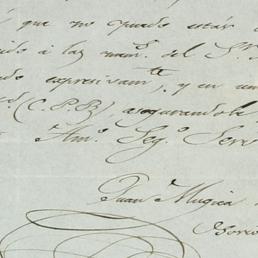 que no puedo estár
á las man.s del S.
expresivam.te, y en un
(C.P.B), asegurandole
Atm.o Seg.o Serv
Juan Mugica